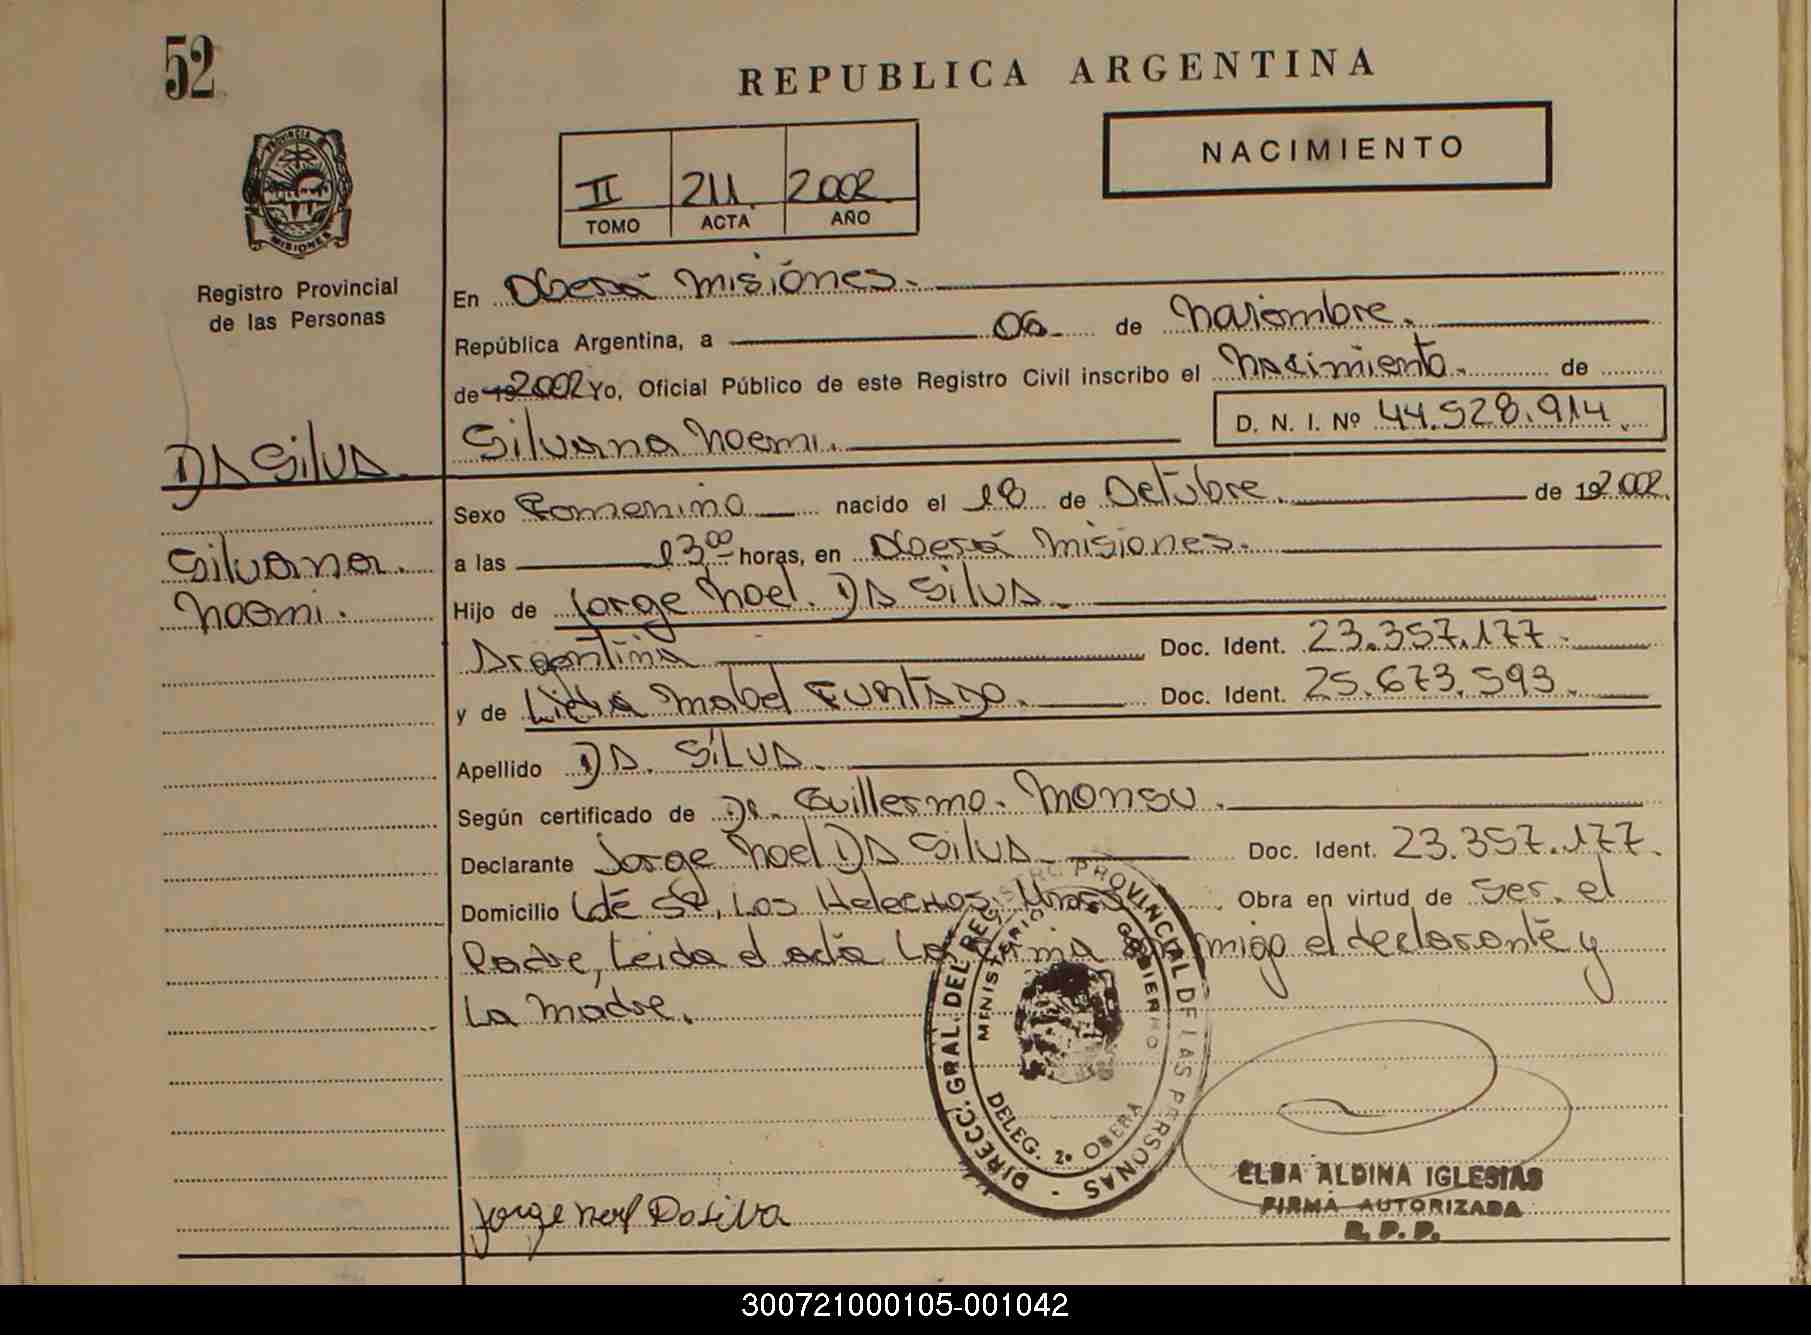 52
REPUBLICA ARGENTINA
NACIMIENTO
II 211. 2.002.
TOMO ACTA AÑO
PROVINCIA DE MISIONES
Registro Provincial
de las Personas
En Oberá Misiones.
República Argentina, a 06 de Noviembre.
de 19 2.002 Yo, Oficial Público de este Registro Civil inscribo el Nacimiento. de
D. N. I. Nº 44.528.914.
DA SILVA Silvana Noemi.
Sexo Femenino nacido el 18 de Octubre. de 19 2.002.
Silvana. a las 13,00 horas, en Oberá Misiones.
Noemi. Hijo de Jorge Noel. DA SILVA.
Argentina Doc. Ident. 23.357.177.
y de Lidia Mabel FURTADO. Doc. Ident. 25.673.593.
Apellido DA. SILVA.
Según certificado de Dr. Guillermo. Monsu.
Declarante Jorge Noel DA SILVA Doc. Ident. 23.357.177.
Domicilio Lte Los Helechos, Obra en virtud de Ser. el
Padre, Leida el acta La firma conmigo el declarante y
La Madre.
DIRECC. GRAL. DEL REGISTRO PROVINCIAL DE LAS PERSONAS -
MINISTERIO GOBIERNO
DELEG. 2º OBERA
Jorge Noel Dasilva
ELBA ALDINA IGLESIAS
FIRMA AUTORIZADA
R. P. P.
300721000105-001042